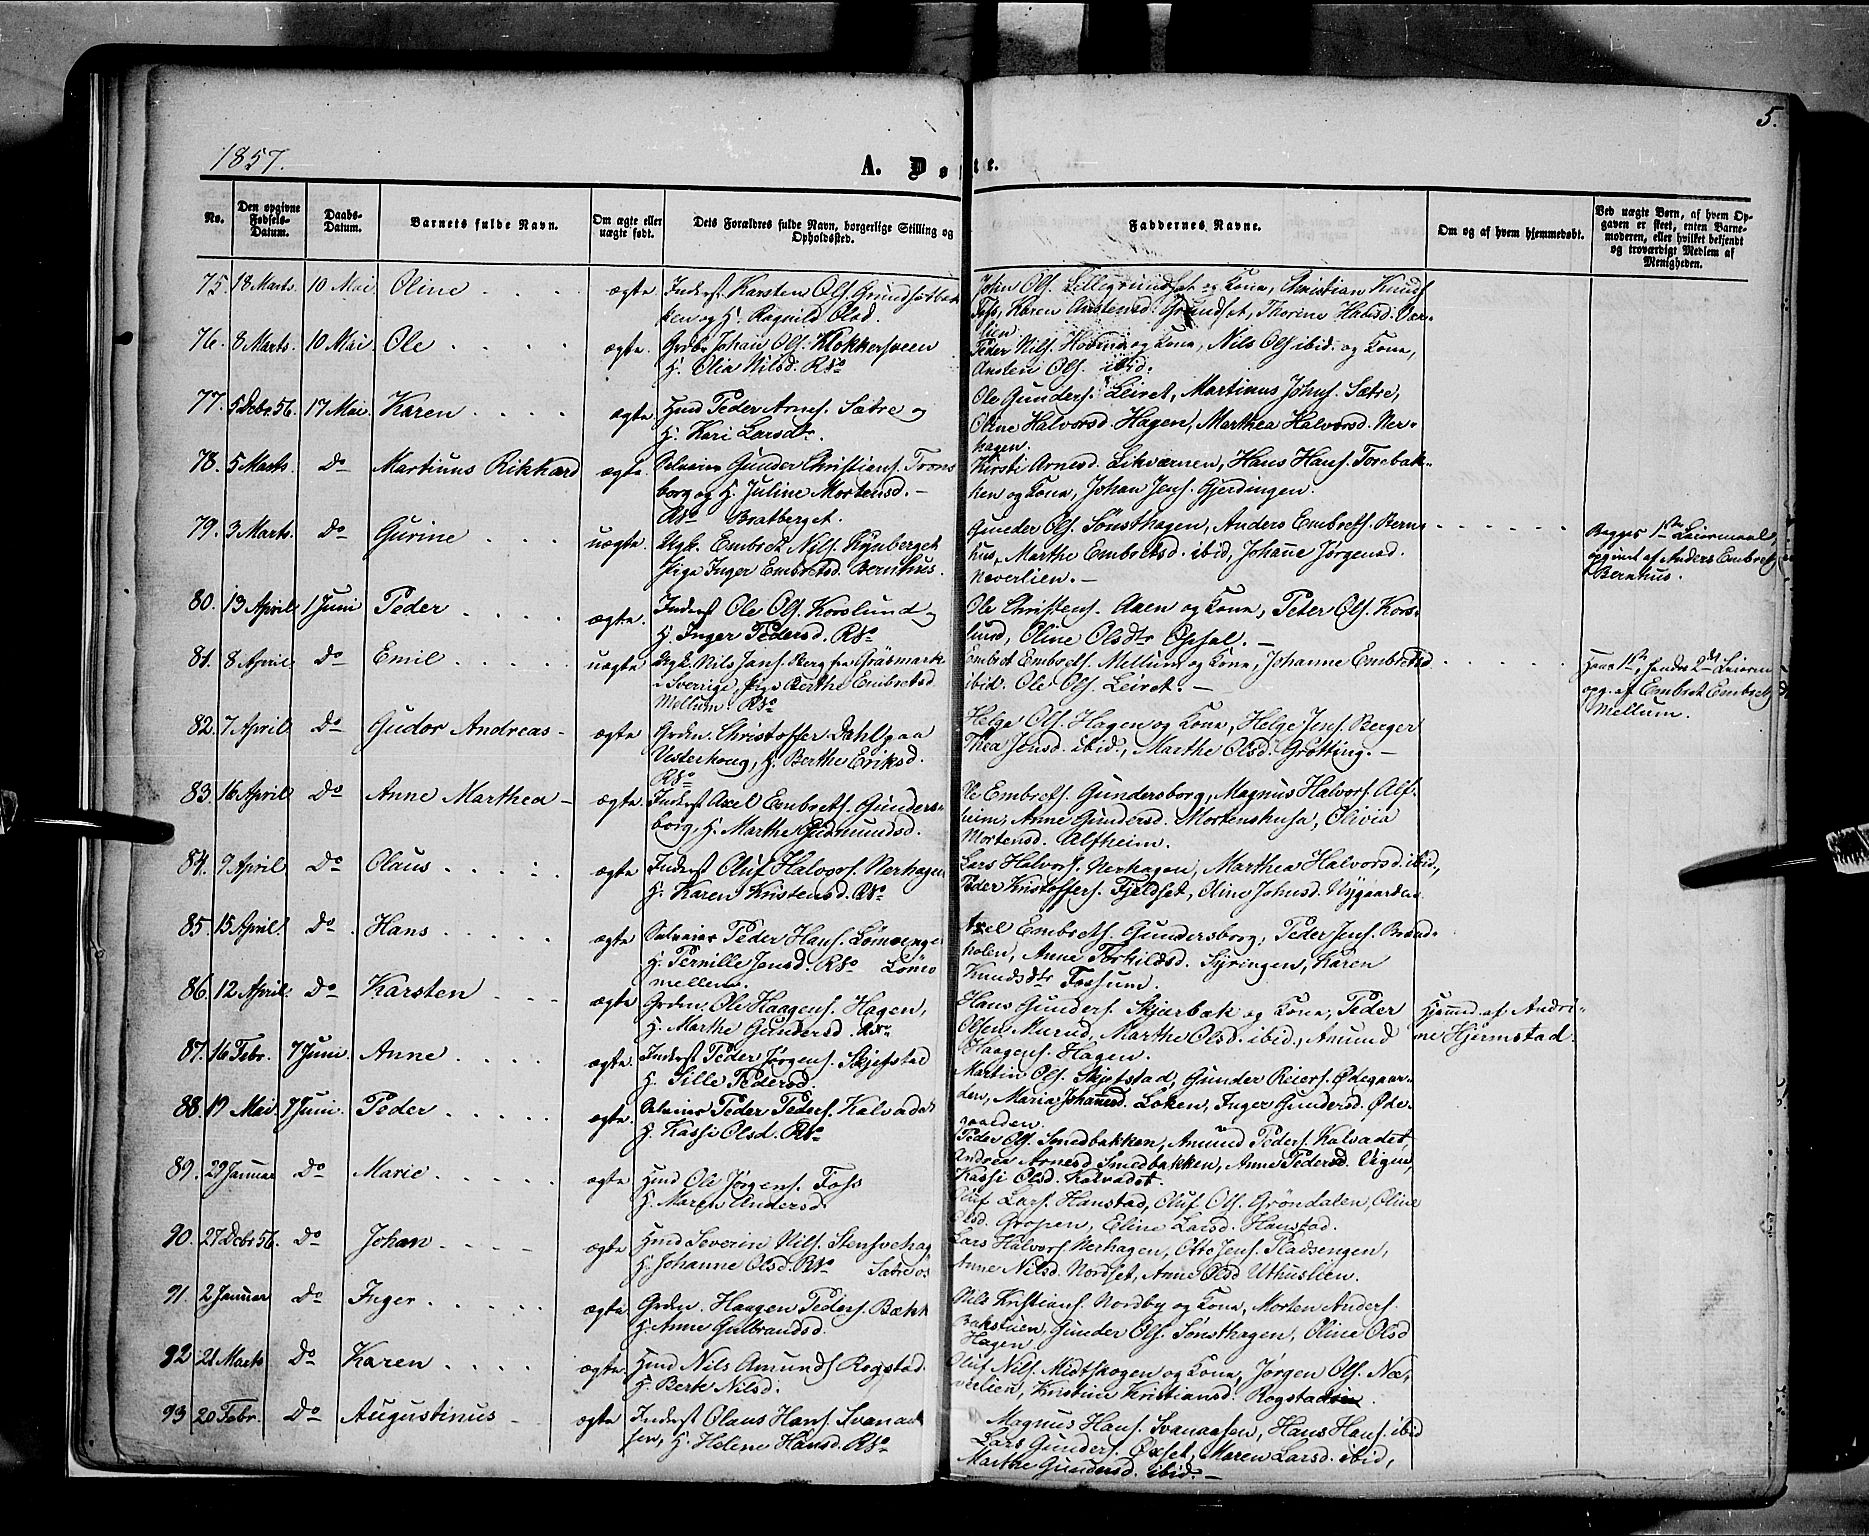 5.
1857.
A. Døbte.
No.
Den opgivne Fødsels-Datum.
Daabs-Datum.
Barnets fulde Navn.
Om ægte eller uægte født.
Dets Forældres fulde Navn, borgerlige Stilling og Opholdssted.
Faddernes Navne.
Om og af hvem hjemmedøbt.
Ved uægte Børn, af hvem Opgaven er skeet, enten Barnemoderen, eller hvilket bekjendt og troværdigt Medlem af Menigheden.
75. 18 Marts. 10 Mai. Oline ægte Inderst Karsten Ols. Grundsetbak
ken og H. Ragnild Olsd.
John Ols. Lillegrundset og Kone, Christian Knuds.
Foss, Karen Arstensd. Grundset, Thorine Hansd. Vær-
lien
76. 8 Marts. 10 Mai Ole ægte. Grdbr Johan Ols. Klokkersveen
H. Olia Nilsd. R&o
Peder Nils. Hovind og Kone, Nils Ols ibid. og Kone,
Arsten Ols. ibid.
77. 5 Debr 56. 17 Mai. Karen ægte Hmd Peder Arnes. Sætre og
H. Kari Larsdtr.
Ole Gunders. Leiret, Martinus Johns. Sætre,
Oline Halvorsd. Hagen, Marthea Halvorsd. Ner-
hagen.
78. 5 Marts. Do Martinus Rikhard ægte Selveier Gunder Christians. Trons
borg og H. Juline Mortensd. -
R&o Bratberget.
Kirsti Arnesd. Likværnen, Hans Hans. Torebak-
ken og Kone, Johan Jens. Gjerdingen.
79. 3 Marts. Do Gurine uægte. Ugk. Embret Nils. Kynberget
Pige Inger Embretsd. Bernhus.
Gunder Ols. Sønsthagen, Anders Embrets. Bern-
hus, Marthe Embretsd. ibid, Johanne Jørgensd.
Neverlien. -
Begges 1ste Leiermaal,
opgivet af Anders Embrets.
Bernhus.
80. 13 April 1 Juni Peder ægte. Inderst Ole Ols. Korslund og
H. Inger Pedersd. R&o
Ole Christens. Aaen og Kone, Peter Ols. Kors-
lund, Oline Olsdtr Opsal. -
81. 8 April Do Emil uægte Ugk. Nils Jans. Berg fra Gräsmark
i Sverrige, Pige Berthe Embretsd
Mellum. R&o
Embret Embrets. Mellum og Kone, Johanne Embretsd
ibid. Ole Ols. Leiret. -
Hans 1ste, hendes 2det Leierm
opg. af Embret Embrets
Mellum.
82. 7 April Do Gudor Andreas - ægte Grdm. Christoffer Dahl paa
Vesterhoug, H. Berthe Eriksd.
R&o
Helge Ols. Hagen og Kone, Helge Jens. Berger
Thea Jensd. ibid., Marthe Olsd. Grøtting. -
83. 16 April Do Anne Marthea - ægte Inderst Axel Embrets. Gunders-
borg, H. Marthe Gudmundsd.
Ole Embrets. Gundersborg, Magnus Halvors. Alf-
heim, Anne Gundersd. Mortenshusa, Olivia
Mortensd. Alfheim.
84. 9 April Do Olaus ægte Inderst Oluf Halvors. Nerhagen
H. Karen Kristensd. R&o
Lars Halvors. Nerhagen, Marthea Halvorsd. ibid,
Peder Kristoffers. Fjeldset, Oline Johnsd. Nygaarden.
85. 15 April Do. Hans ægte Selveier Peder Hans. Lømoenget
H. Pernille Jensd. R&o Lømo
mellem.
Axel Embrets. Gundersborg, Peder Jens. Brænd-
holen, Anne Torkildsd. Kyringen, Karen
Knudsdtr Fossum.
86. 12 April. Do Karsten ægte Grdm. Ole Haagens. Hagen,
H. Marthe Gundersd. R&o
Hans Gunders. Skjærbæk og Kone, Peder
Olsen Murud, Marthe Olsd. ibid., Amund
Haagens. Hagen.
Hjemmed. af Andri-
ne Hjermstad.
87. 16 Febr. 7 Juni. Anne ægte. Inderst Peder Jørgens. Skjefstad
H. Sille Pedersd.
Martin Ols. Skjefstad, Gunder Reiers. Ødegaar-
den, Maria Johannesd. Løken, Inger Gundersd. Øde-
gaarden.
88. 19 Mai 7 Juni. Peder ægte. Selveier Peder Peders. Kalvadet
H. Kassi Olsd. R&o
Peder Ols. Smedbakken, Amund Peders. Kalvadet
Andrea Arnesd Smedbakken, Anne Pedersd. Uigen,
Kassi Olsd. Kalvadet.
89. 29 Januar Do Marie ægte Hmd Ole Jørgens. Foss
H. Maren Andersd.
Oluf Lars. Hanstad, Oluf Ols. Grøndalen, Oline
Olsd. Gropen, Eline Larsd. Hanstad.
90. 27 Debr 56. Do Johan ægte Hmd Severin Nils. Stensvehag
H. Johanne Olsd. R&o Sætre os
Lars Halvors Nerhagen, Otto Jens. Pladsengen,
Anne Nilsd. Nordset, Anne Olsd Uthuslien.
91. 2 Januar Do Inger ægte Grdm. Haagen Peders. Bækk
H. Anne Gulbrandsd.
Nils Kristians. Nordby og Kone, Morten Anders.
Bakslien, Gunder Ols. Sønsthagen, Oline Olsd
Hagen
92 21 Marts Do Karen ægte Hmd Nils Amunds Rogstad.
H. Berte Nilsd.
Oluf Nils. Midtskogen og Kone, Jørgen Ols. Næ-
verlien, Kristine Kristiansd. Rogstad
93 20 Febr. Do Augustinus - ægte Inderst Olaus Hans. Svenaa
sen, H. Helene Hansd. R&o
Magnus Hans. Svenaasen, Hans Hans. ibid
Lars Gunders. Øxset, Maren Larsd. ibid,
Marthe Gundersd. ibid. -